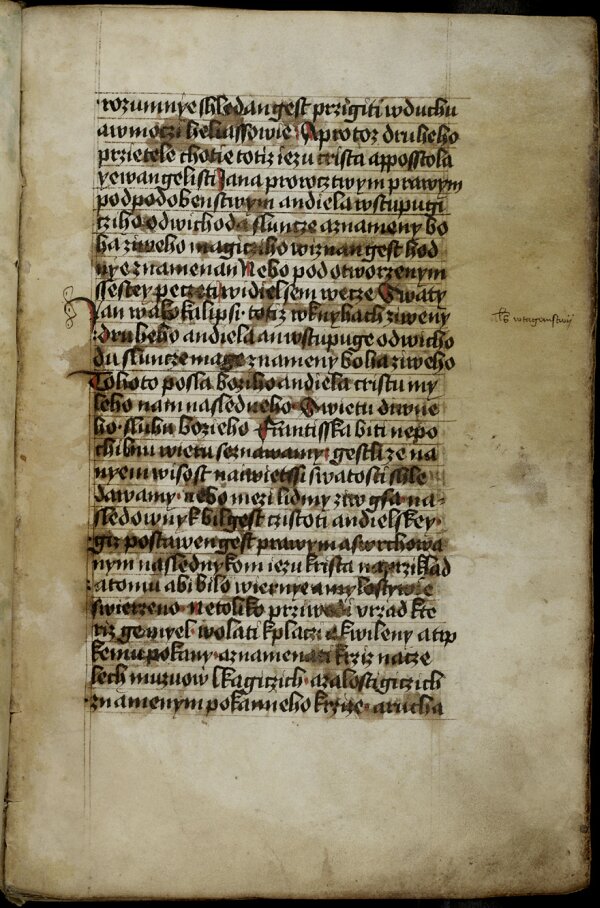 rozumnye shledan gest przigiti wduchu
awmoczi heliassowie Aprotoz druheho
przietele chotie totiz iezu crista apposstola
yewangelisti Jana prorocztwym prawym
podpodobenstwym andiela wstupugi
cziho odwichoda sluntze aznameny bo
ha ziweho magicziho wiznan gest hod
nye znamenan Nebo pod otworzenym
ssestey peczeti widiel sem wecze Swaty
Jan wapokalipsi totiz wknyhach zgeweny
druheho andiela an wstupuge odwicho
du sluntze mage znameny boha ziweho
Tohoto posla bozího andiela cristu my
leho nam nasledneho Swietu diwne
ho sluhu bozieho Frantisska biti nepo
chibnu wieru seznawamy gestlize na
nyem wisost naiwietssi swatosti shle
dawamy nebo mezi lidmy ziw gsa na
sledownyk bil gest czistoti andielskey
giz postawen gest prawym aswrchowa
nym naslednykom iezu krista naprziklad
atomu abi bilo wiernye amylostywie
swierzeno netoliko prziwedl vrzad kte
riz gemyel wolati kplaczi akwileny atip
kemu pokany aznamenati krziz nacze
lech muzuow lkagiczich azalostigiczich
znamenym pokanneho krzize arucha